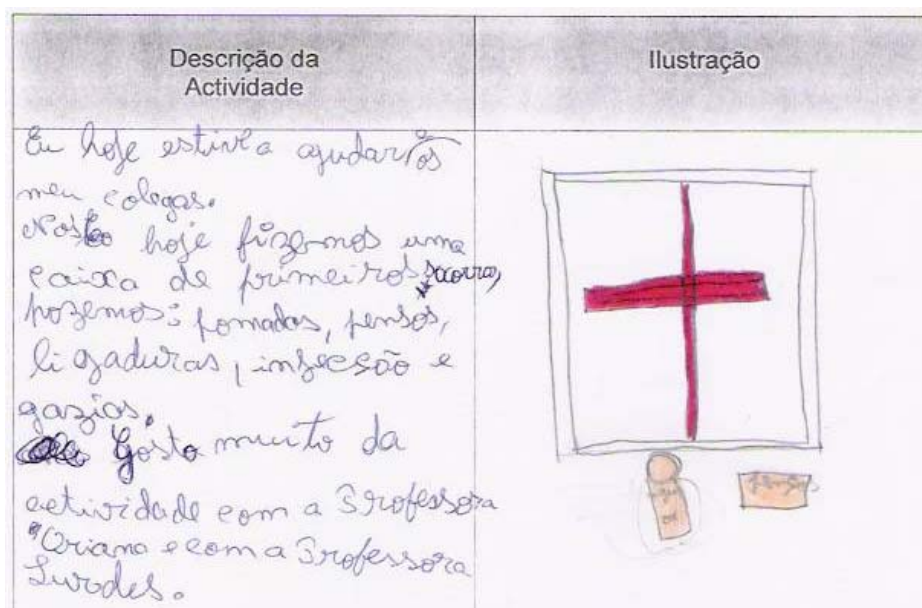 Descrição da
Actividade
Ilustração
Eu hoje estive a ajudar os
meu colegas.
Nos hoje fizemos uma
caixa de primeiros socorro,
pozemos: pomadas, pensos,
ligaduras, insecsão e
gazias.
Gosto muito da
actividade com a Professora
Oriana e com a Professora
Lurodes.
pensos